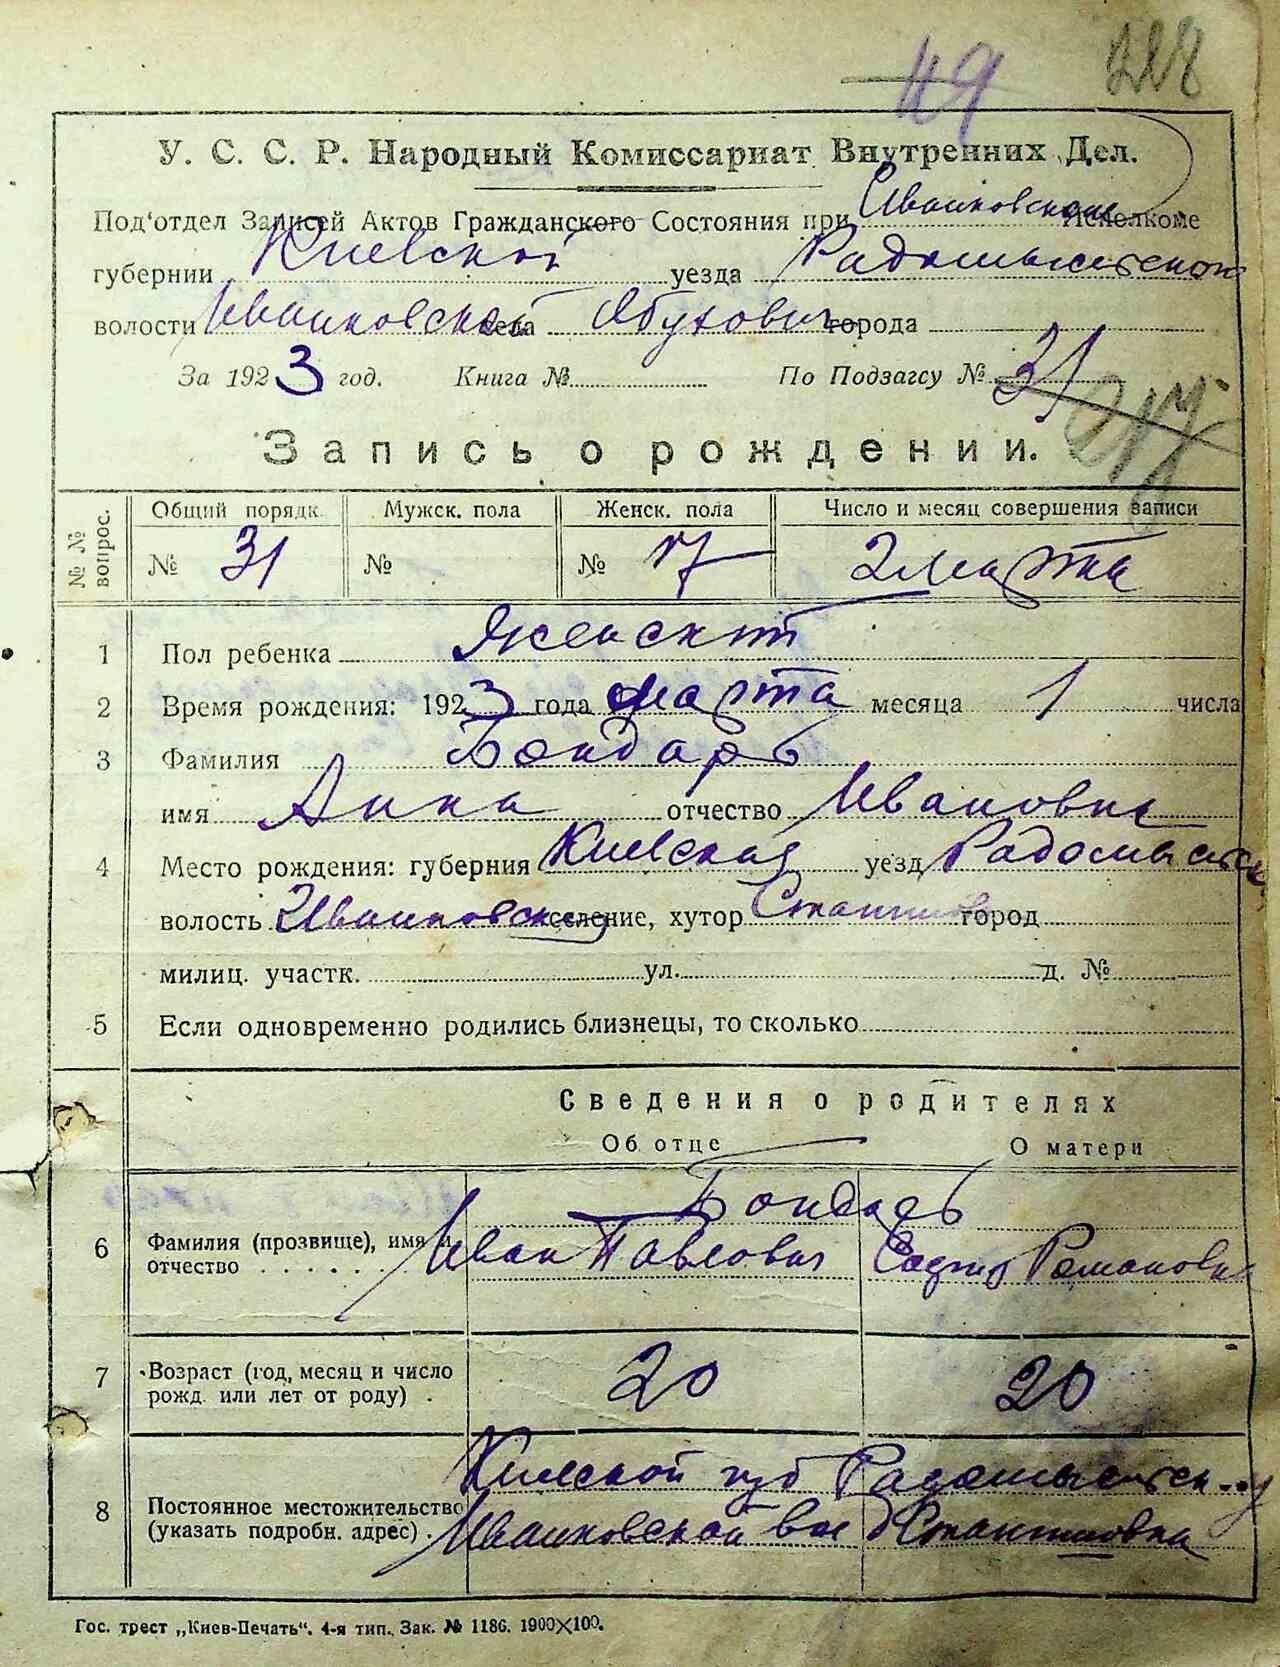 49 228
У. С. С. Р. Народный Комиссариат Внутренних Дел.
Под‘отдел Записей Актов Гражданского Состояния при Исполкоме
губернии Киевской уезда
волости Иванковской села города
За 1923 год. Книга № По Подзагсу № 31
217
Запись о рождении.
№ № вопрос.
Общий порядк. Мужск. пола Женск. пола Число и месяц совершения записи
№ 31 № № 17 2 марта
1 Пол ребенка Женский
2 Время рождения: 1923 года марта месяца 1 числа
3 Фамилия Бондарь
имя Анна отчество Ивановна
4 Место рождения: губерния Киевская уезд Радомысльск
волость Иванковская селение, хутор город
милиц. участк. ул. д. №
5 Если одновременно родились близнецы, то сколько
Сведения о родителях
Об отце О матери
Бондарь
6 Фамилия (прозвище), имя и
отчество . . . . . . Иван Павлович Романовна
7 Возраст (год, месяц и число
рожд. или лет от роду) . 20 20
Киевской губ
8 Постоянное местожительство
(указать подробн. адрес) . Иванковской вол
Гос. трест „Киев-Печать“. 4-я тип. Зак. № 1186. 1900×100.